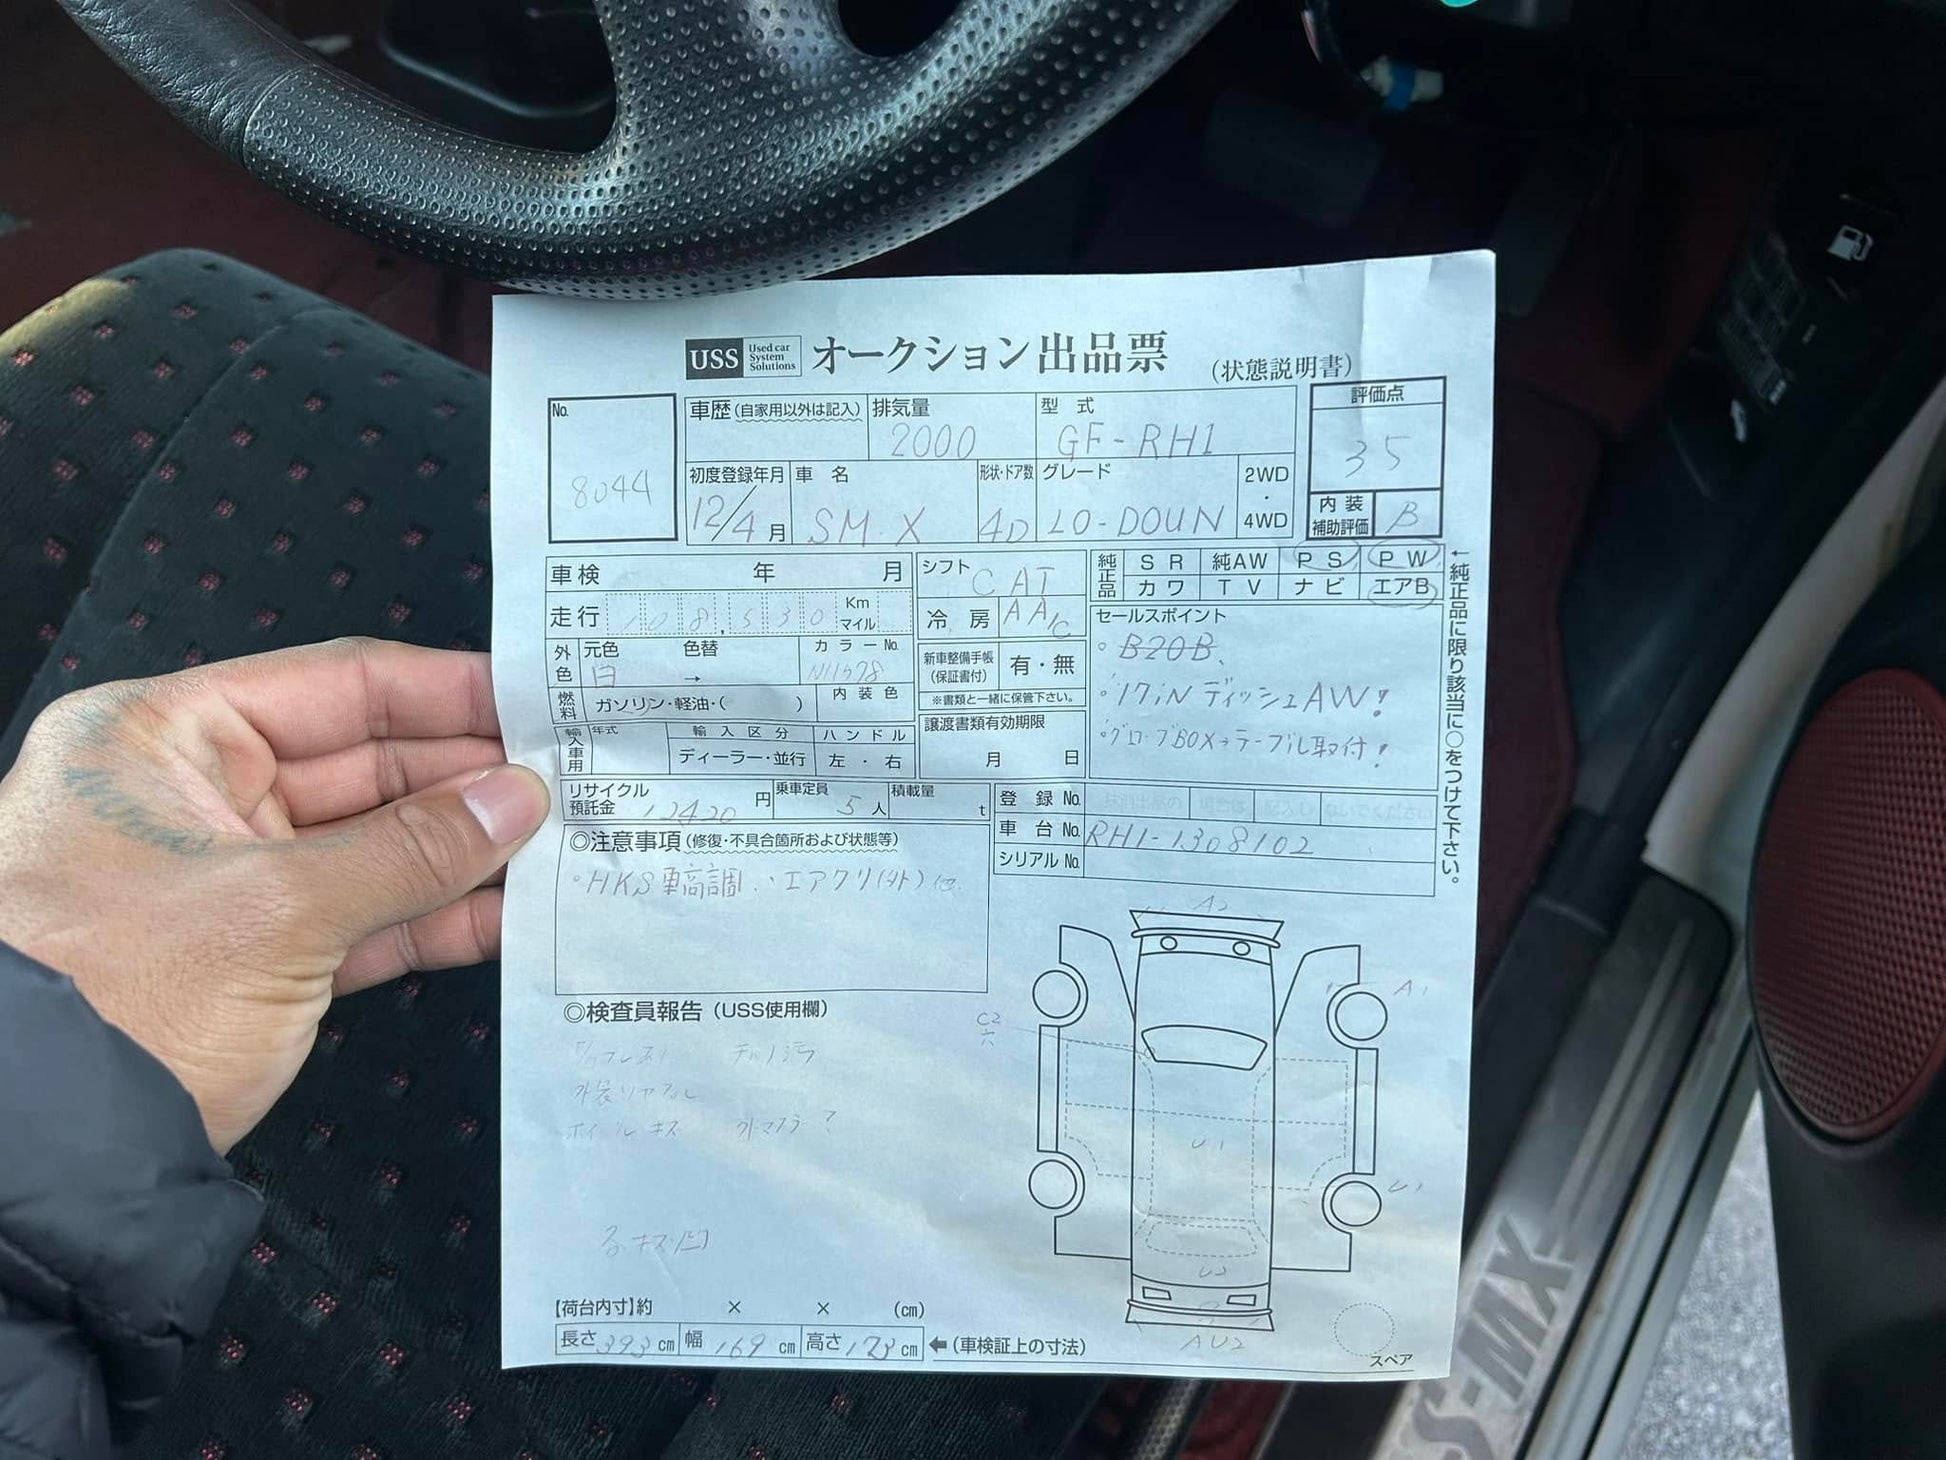 USS Used car System Solutions オークション出品票 (状態説明書)
No. 8044
車歴(自家用以外は記入) 排気量 2000 型式 GF-RH1
評価点 35
初度登録年月 12/4月 車名 SM.X 形状・ドア数 4D グレード LO-DOUN 2WD・4WD
内装補助評価 B
車検 年 月 シフト CAT 純正品 SR 純AW PS PW
カワ TV ナビ エアB
走行 108,530 Km マイル 冷房 AA/C
←純正品に限り該当に○をつけて下さい。
セールスポイント
外色 元色 白 色替 → カラーNo.
新車整備手帳(保証書付) 有・無
※書類と一緒に保管下さい。
。B20B、
。17iNディッシュAW!
。グローブBOX→テーブル取付!
燃料 ガソリン・軽油・( ) 内装色
輸入車用 年式 輸入区分 ハンドル
ディーラー・並行 左・右
譲渡書類有効期限
月 日
リサイクル預託金 12420円 乗車定員 5人 積載量 t
登録No.
車台No. RH1-1308102
シリアルNo.
◎注意事項(修復・不具合箇所および状態等)
。HKS車高調、エアクリ(外)他
A2
A1
◎検査員報告(USS使用欄)
C2
穴
ホイールキズ
U1
U1
キズ凹
【荷台内寸】約 × × (cm)
長さ393cm 幅169cm 高さ173cm ←(車検証上の寸法)
AU2
スペア
S-MX